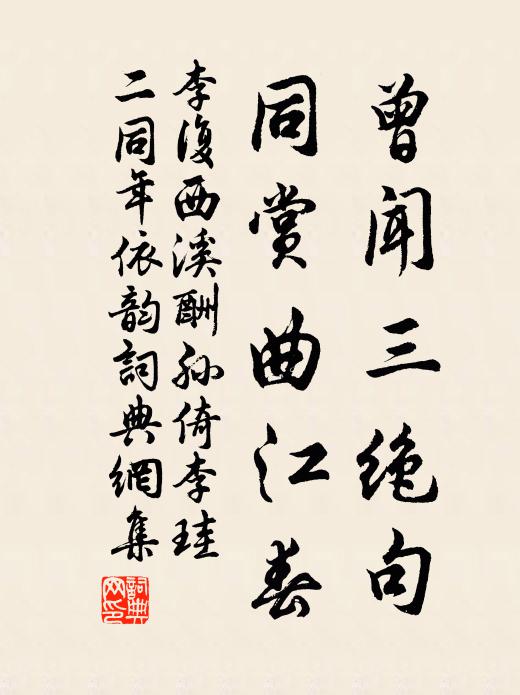 曾闻三绝句
同赏曲江春
李復西溪酬孙倚李珪
二同年依韵詞典網集
詞典网印